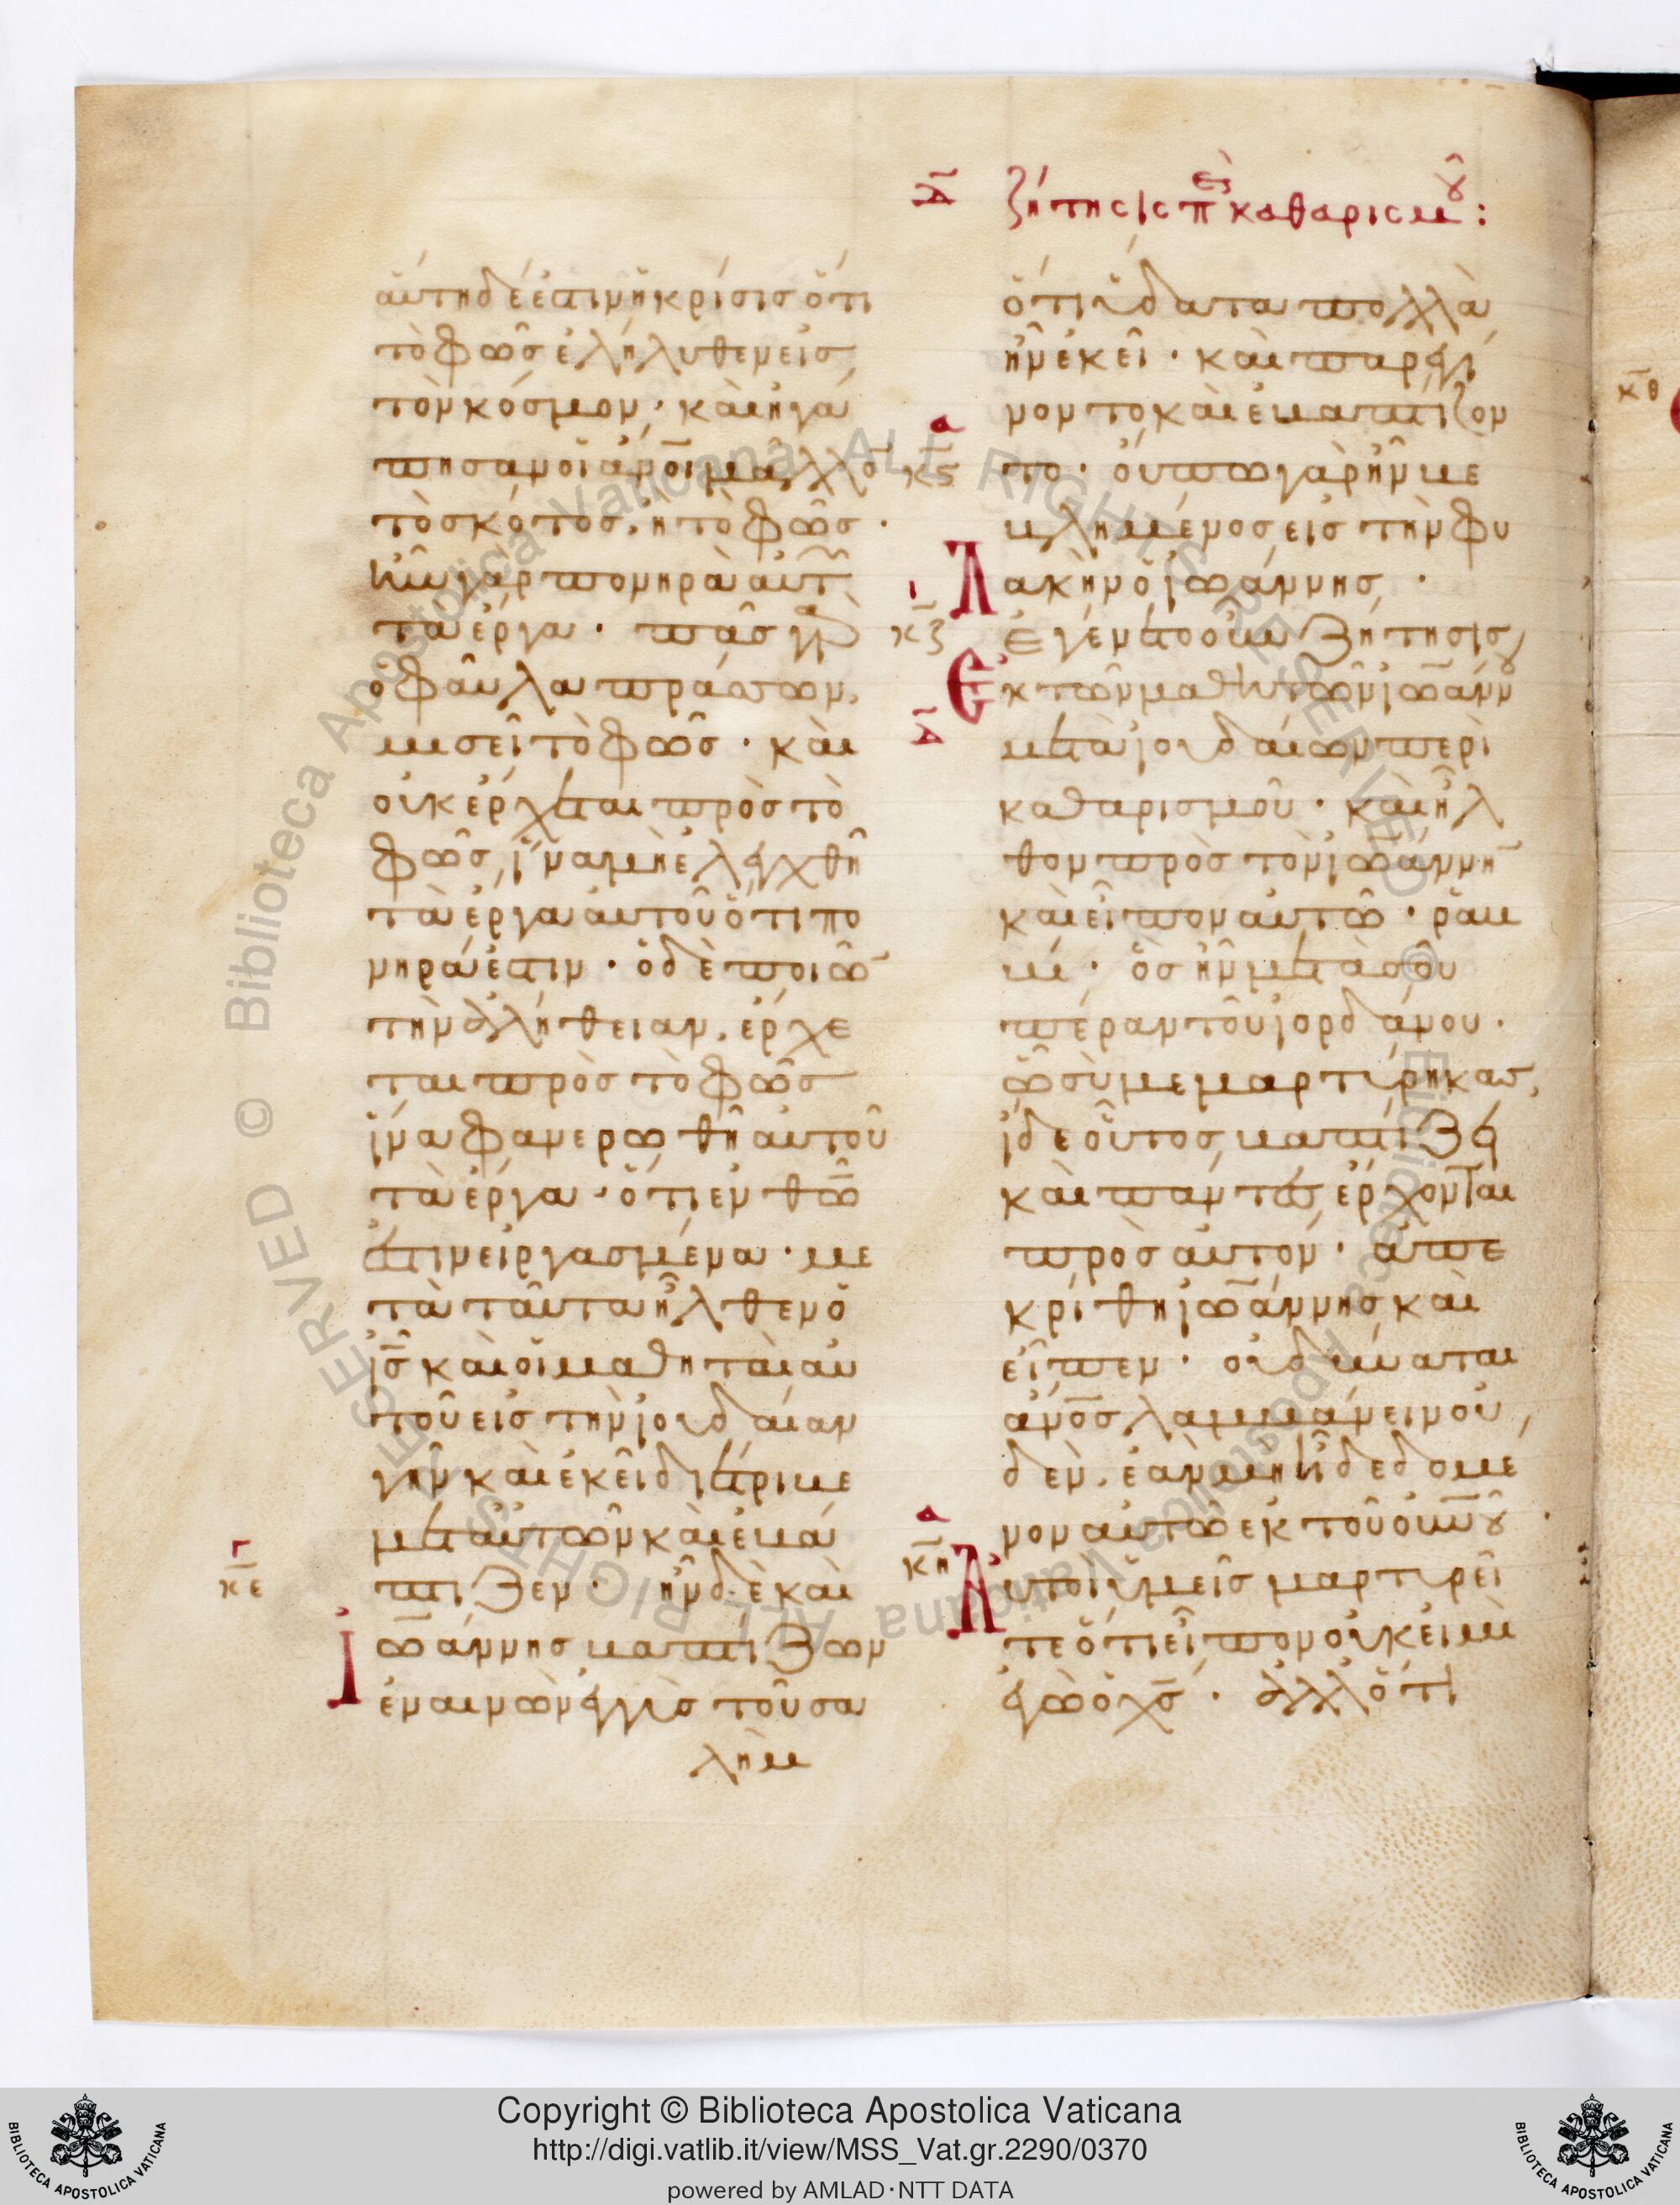 Δ̄ ζήτησις π(ερὶ) καθαρισμοῦ:
αὕτη δέ ἐστιν ἡ κρίσις ὅτι
τὸ φῶς ἐλήλυθεν εἰς
τὸν κόσμον· καὶ ἠγά
πησαν οἱ ἄν̅ο̅ι μᾶλλον
τὸ σκότος, ἢ τὸ φῶς·
ἦν γὰρ πονηρὰ αὐτῶν
τὰ ἔργα· πᾶς γὰρ
ὁ φαῦλα πράσσων,
μισεῖ τὸ φῶς· καὶ
οὐκ ἔρχεται πρὸς τὸ
φῶς, ἵνα μὴ ἐλεγχθῆ
τὰ ἔργα αὐτοῦ ὅτι πο
νηρά ἐστιν· ὁ δὲ ποιῶν
τὴν ἀλήθειαν, ἔρχε
ται πρὸς τὸ φῶς
ἵνα φανερωθῆ αὐτοῦ
τὰ ἔργα· ὅτι ἐν θ̅ω̅
ἐστιν εἰργασμένα· με
τὰ ταῦτα ἦλθεν ὁ
ἰ̅ς̅ καὶ οἱ μαθηταὶ αὐ
τοῦ εἰς τὴν ἰουδαίαν
γῆν καὶ ἐκεῖ διέτριβε
μετ' αὐτῶν καὶ ἐβά
πτιζεν· ἦν δὲ καὶ
Γ
κ̅ε̅
Ἰωάννης βαπτίζων
ἐν αἰνὼν ἐγγὺς τοῦ σα
λὴμ
ὅτι ὕδατα πολλὰ
ἦν ἐκεῖ· καὶ παρεγί
νοντο καὶ ἐβαπτίζον
α
κ̅ς̅
το· οὔπω γὰρ ἦν βε
βλημένος εἰς τὴν φυ
λακὴν ὁ ἰωάννης·
ι
κ̅ζ̅
Ἐγένετο οὖν ζήτησις
Ἐκ τῶν μαθητῶν ἰωάννου
Δ̄
μετὰ ἰουδαίων περὶ
καθαρισμοῦ· καὶ ἦλ
θον πρὸς τὸν ἰωάννην
καὶ εἶπον αὐτῶ· ῥαβ
βί· ὃς ἦν μετὰ σοῦ
πέραν τοῦ ἰορδάνου·
ὧ σὺ μεμαρτύρηκας,
ἴδε οὗτος βαπτίζει
καὶ πάντες ἔρχονται
πρὸς αὐτόν· ἀπε
κρίθη ἰωάννης καὶ
εἶπεν· οὐ δύναται
ἄν̅ο̅ς λαμβάνειν οὐ
δὲν, ἐὰν μὴ ἦ δεδομέ
νον αὐτῶ ἐκ τοῦ οὐ̅ν̅οῦ·
α
κ̅η̅
Αὐτοὶ ὑμεῖς μαρτυρεῖ
τε ὅτι εἶπον οὐκ εἰμὶ
ἐγὼ ὁ χ̅ς̅· ἀλλ' ὅτι
κ̅θ̅
Copyright © Biblioteca Apostolica Vaticana
http://digi.vatlib.it/view/MSS_Vat.gr.2290/0370
powered by AMLAD·NTT DATA
BIBLIOTECA APOSTOLICA VATICANA
BIBLIOTECA APOSTOLICA VATICANA